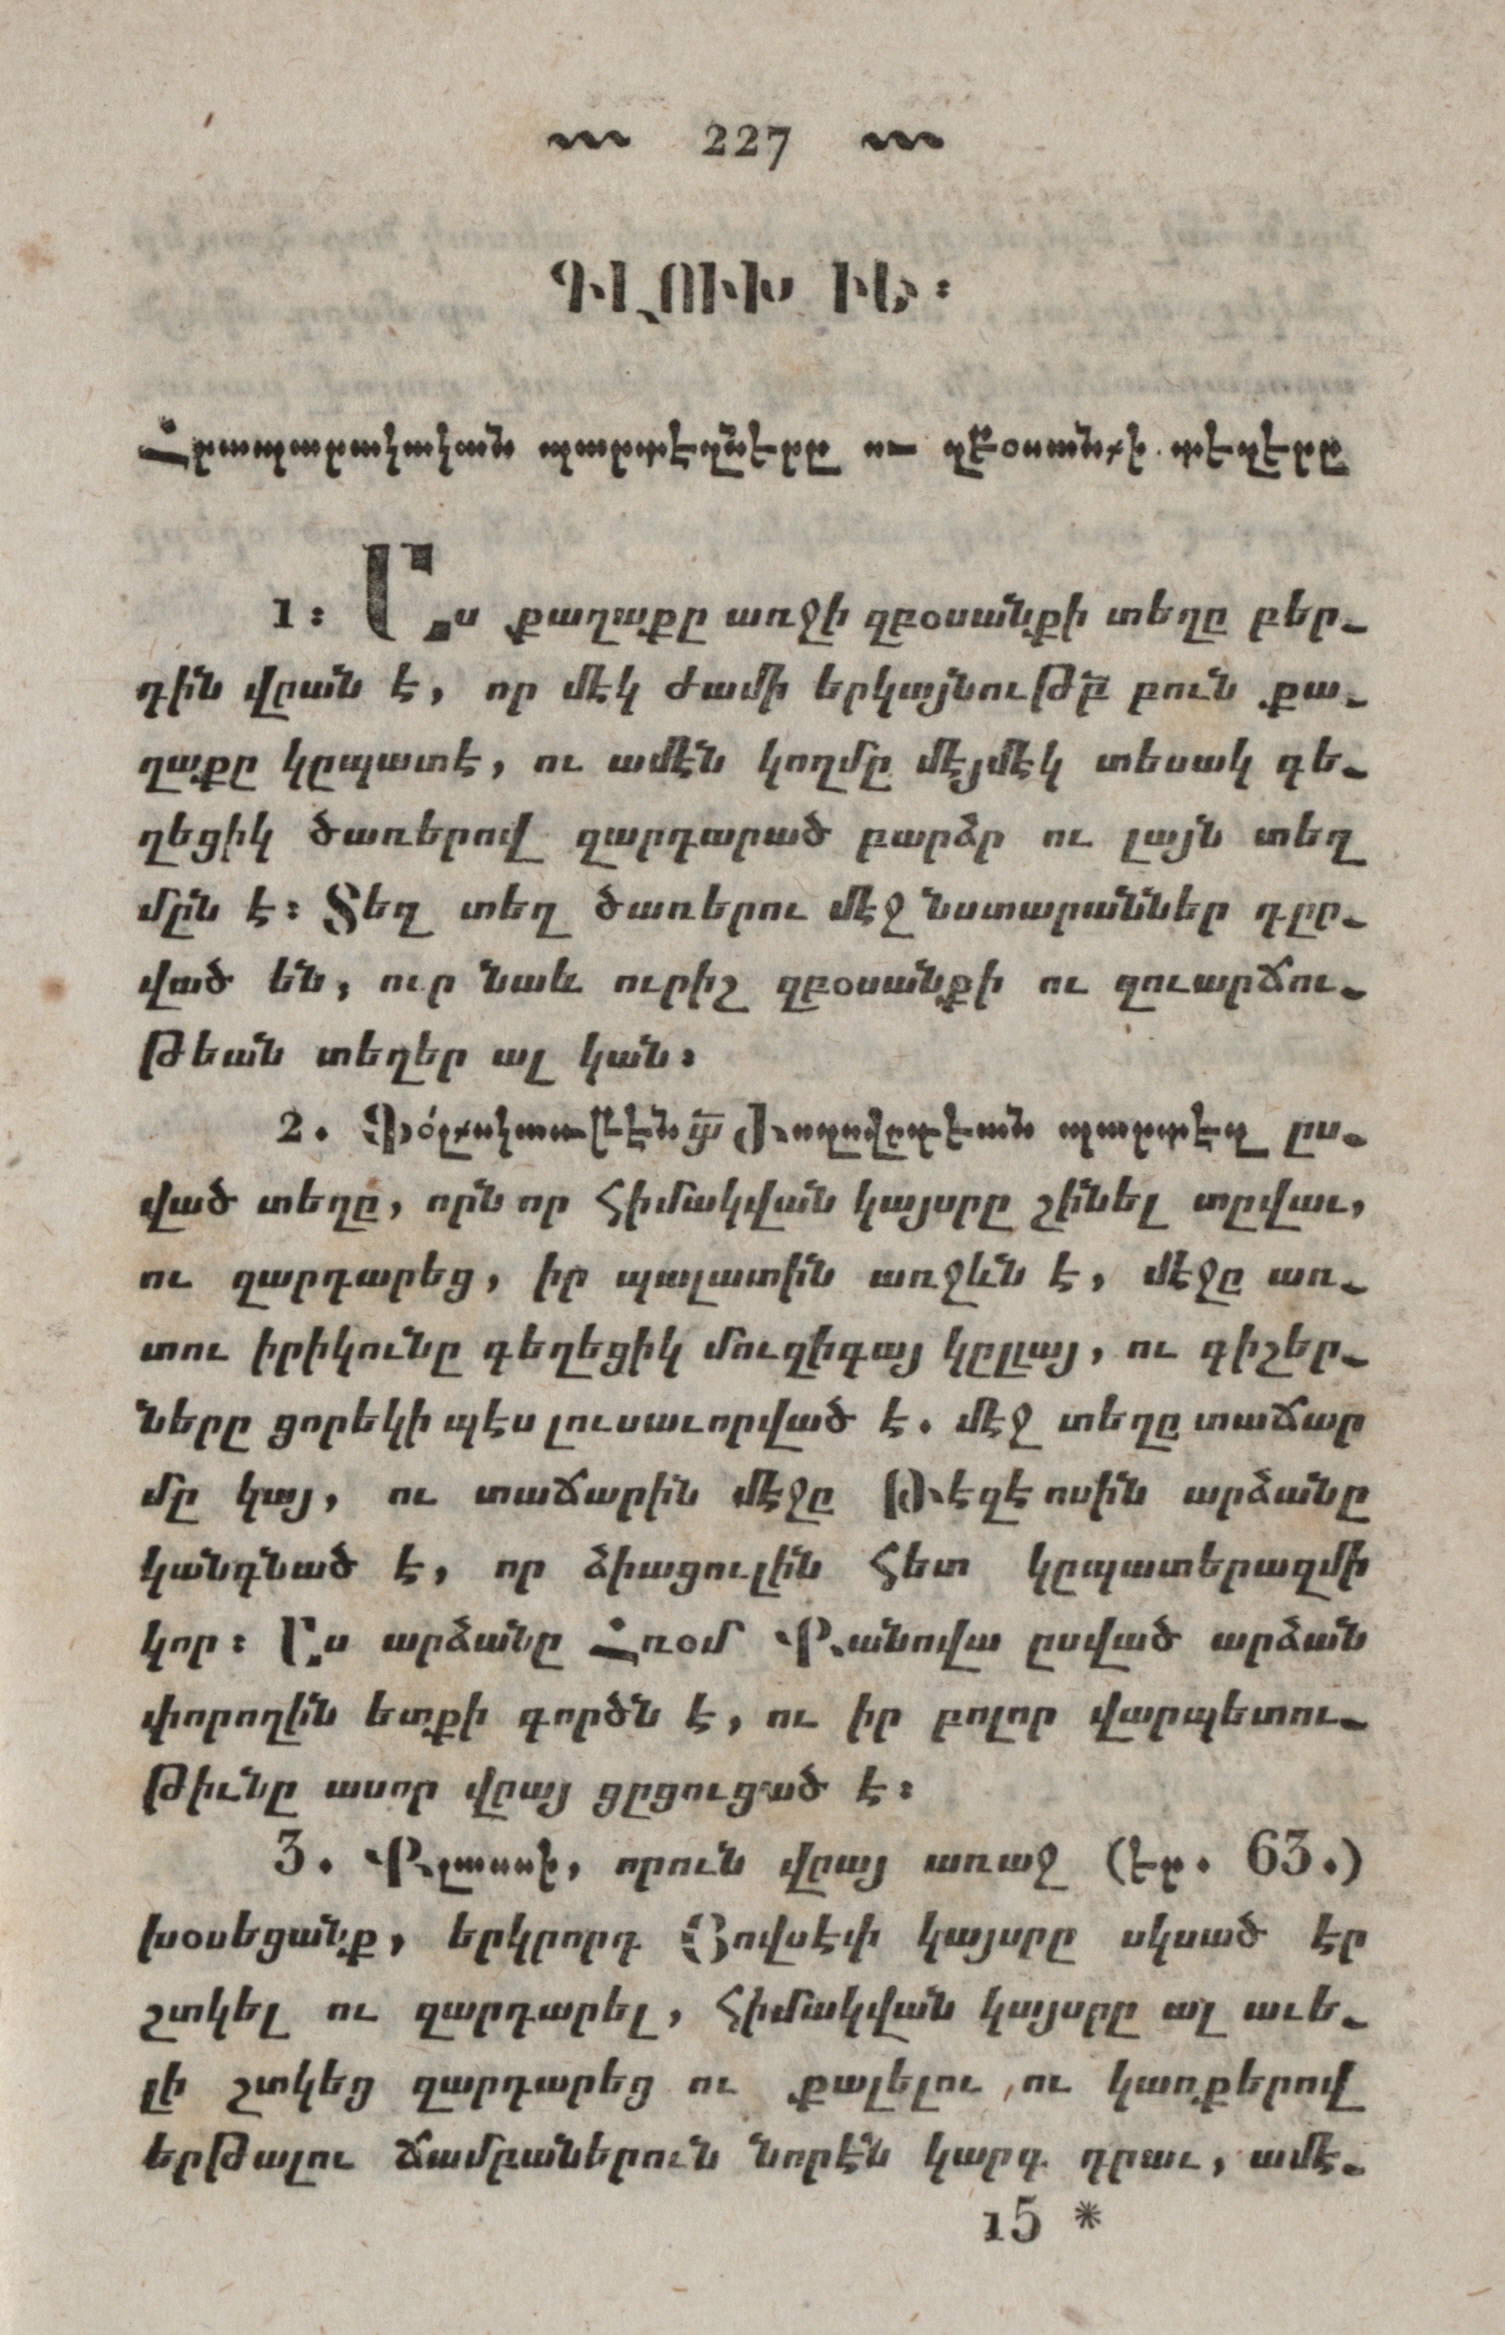 227
ԳԼՈՒԽ ԻԵ։
Հրապարակական պարտէզները ու զբօսանքի տեղերը
1։ Աս քաղաքը առջի զբօսանքի տեղը բեր-
դին վըան է, որ մէկ ժամի երկայնութք բուն քա-
ղաքը կըպատէ, ու ամէն կողմը մէյմէկ տեսակ գե-
ղեցիկ ծառերով զարդարած բարձր ու լայն տեղ
մըն է։ Տեղ տեղ ծառերու մէջ նստարաններ դըր-
ված են, ուր նաև ուրիշ զբօսանքի ու զուարճու-
թեան տեղեր ալ կան։
2. Ժողովրդեան պարտէզ ըս-
ված տեղը, որն որ հիմակվան կայսրը շինել տըվաւ,
ու զարդարեց, իր պալատին առջևն է, մէջը առ-
տու իրիկունը գեղեցիկ մուզիգայ կըլլայ, ու գիշեր-
ները ցորեկի պէս լուսաւորված է. մէջ տեղը տաճար
մը կայ, ու տաճարին մէջը Թէզէոսին արձանը
կանգնած է, որ ձիացուլին հետ կըպատերազմի
կոր։ Աս արձանը Հռօմ Քանովա ըսված արձան
փորողին ետքի գործն է, ու իր բոլոր վարպետու-
թիւնը ասոր վըայ ցըցուցած է։
3. Քլասի, որուն վըայ առաջ (էր. 63.)
խօսեցանք, երկրորդ Յովսէփ կայսրը սկսած էր
շտկել ու զարդարել, հիմակվան կայսրը ալ աւե-
լի շտկեց զարդարեց ու քալելու ու կառքերով
երթալու ճամբաներուն նորէն կարգ դրաւ, ամէ-
15 *